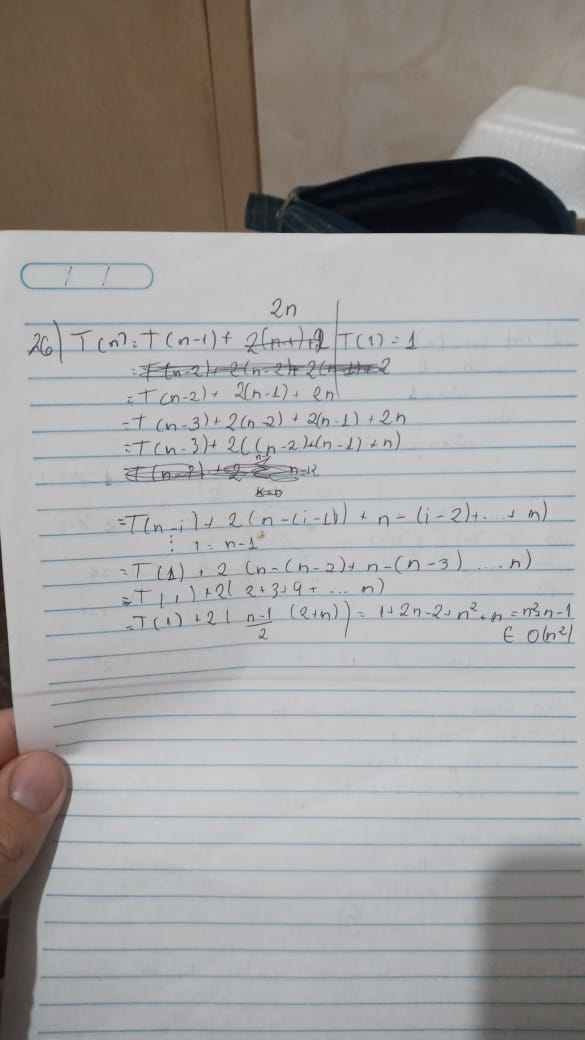 2n
26) T(n) = T(n-1) + | T(1) = 1
= T(n-2) + 2(n-1) + 2n
= T(n-3) + 2(n-2) + 2(n-1) + 2n
= T(n-3) + 2((n-2)+(n-1)+n)
= T(n-i) + 2(n-(i-1)) + n-(i-2)+...+ n)
⋮ i = n-1
= T(1) + 2 (n-(n-2)+ n-(n-3) .... n)
= T(1) + 2( 2+3+4+ ... n)
= T(1) + 2( n-1/2 (2+n)) = 1+2n-2+n²-n = n²+n-1
∈ O(n²)